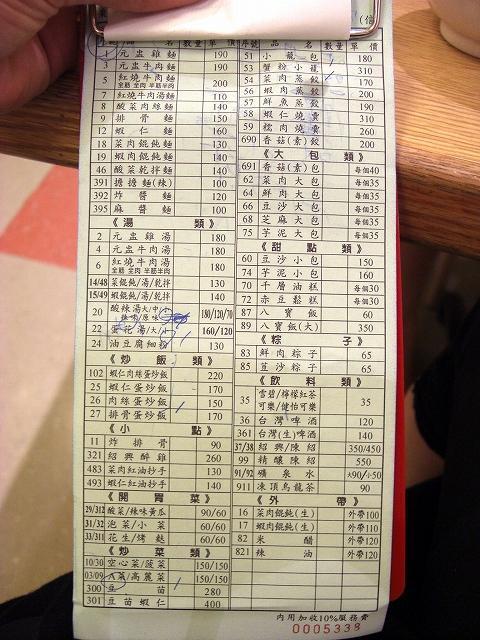 品名 數量 單價
1 元盅雞麵 190
3 元盅牛肉麵 190
5 紅燒牛肉麵 200
全筋 全肉 半筋半肉
7 紅燒牛肉湯麵 110
8 酸菜肉絲麵 140
9 排骨麵 150
12 蝦仁麵 160
18 菜肉餛飩麵 130
19 蝦肉餛飩麵 140
46 酸菜乾拌麵 140
391 擔擔麵(辣) 100
392 炸醬麵 120
395 麻醬麵 100
《湯類》
2 元盅雞湯 180
4 元盅牛肉湯 180
6 紅燒牛肉湯 180
全筋 全肉 半筋半肉
14/48 菜餛飩/湯/乾拌 130
15/49 蝦餛飩/湯/乾拌 140
20 酸辣湯大/中/小 180/120/70
22 蛋花湯/大/小 160/120
24 油豆腐細粉 130
《炒飯類》
102 蝦仁肉絲蛋炒飯 220
25 蝦仁蛋炒飯 170
26 肉絲蛋炒飯 150
27 排骨蛋炒飯 170
《小點》
11 炸排骨 90
321 紹興醉雞 260
483 菜肉紅油抄手 130
493 蝦仁紅油抄手 140
《開胃菜》
29/312 酸菜/辣味黃瓜 90/60
31/32 泡菜/小菜 60/60
33/311 花生/烤麩 60/60
《炒菜類》
10/30 空心菜/菠菜 150/150
03/09 A菜/高麗菜 150/150
300 豆苗 280
301 豆苗蝦仁 400
序號 品名 數量 單價
51 小籠包 180
53 蟹粉小籠 310
54 菜肉蒸餃 170
56 蝦肉蒸餃 200
57 鮮魚蒸餃 190
58 蝦仁燒賣 310
59 糯肉燒賣 260
690 香菇(素)餃 200
《大包類》
691 香菇(素)包 每個40
62 菜肉大包 每個35
64 鮮肉大包 每個35
66 豆沙大包 每個35
68 芝麻大包 每個35
75 芋泥大包 每個35
《甜點類》
60 豆沙小包 150
74 芋泥小包 160
70 千層油糕 每個30
72 赤豆鬆糕 每個30
87 八寶飯 60
89 八寶飯(大) 350
《粽子》
83 鮮肉粽子 65
85 荳沙粽子 65
《飲料類》
35 雪碧/檸檬紅茶 35
可樂/健怡可樂
36 台灣啤酒 120
361 台灣(生)啤酒 140
37/38 紹興/陳紹 350/450
99 精釀陳紹 550
91/92 礦泉水 大90/小50
911 凍頂烏龍茶 90
《外帶》
16 菜肉餛飩(生) 外帶100
17 蝦肉餛飩(生) 外帶110
82 米醋 外帶120
821 辣油 外帶120
內用加收10%服務費
0005338